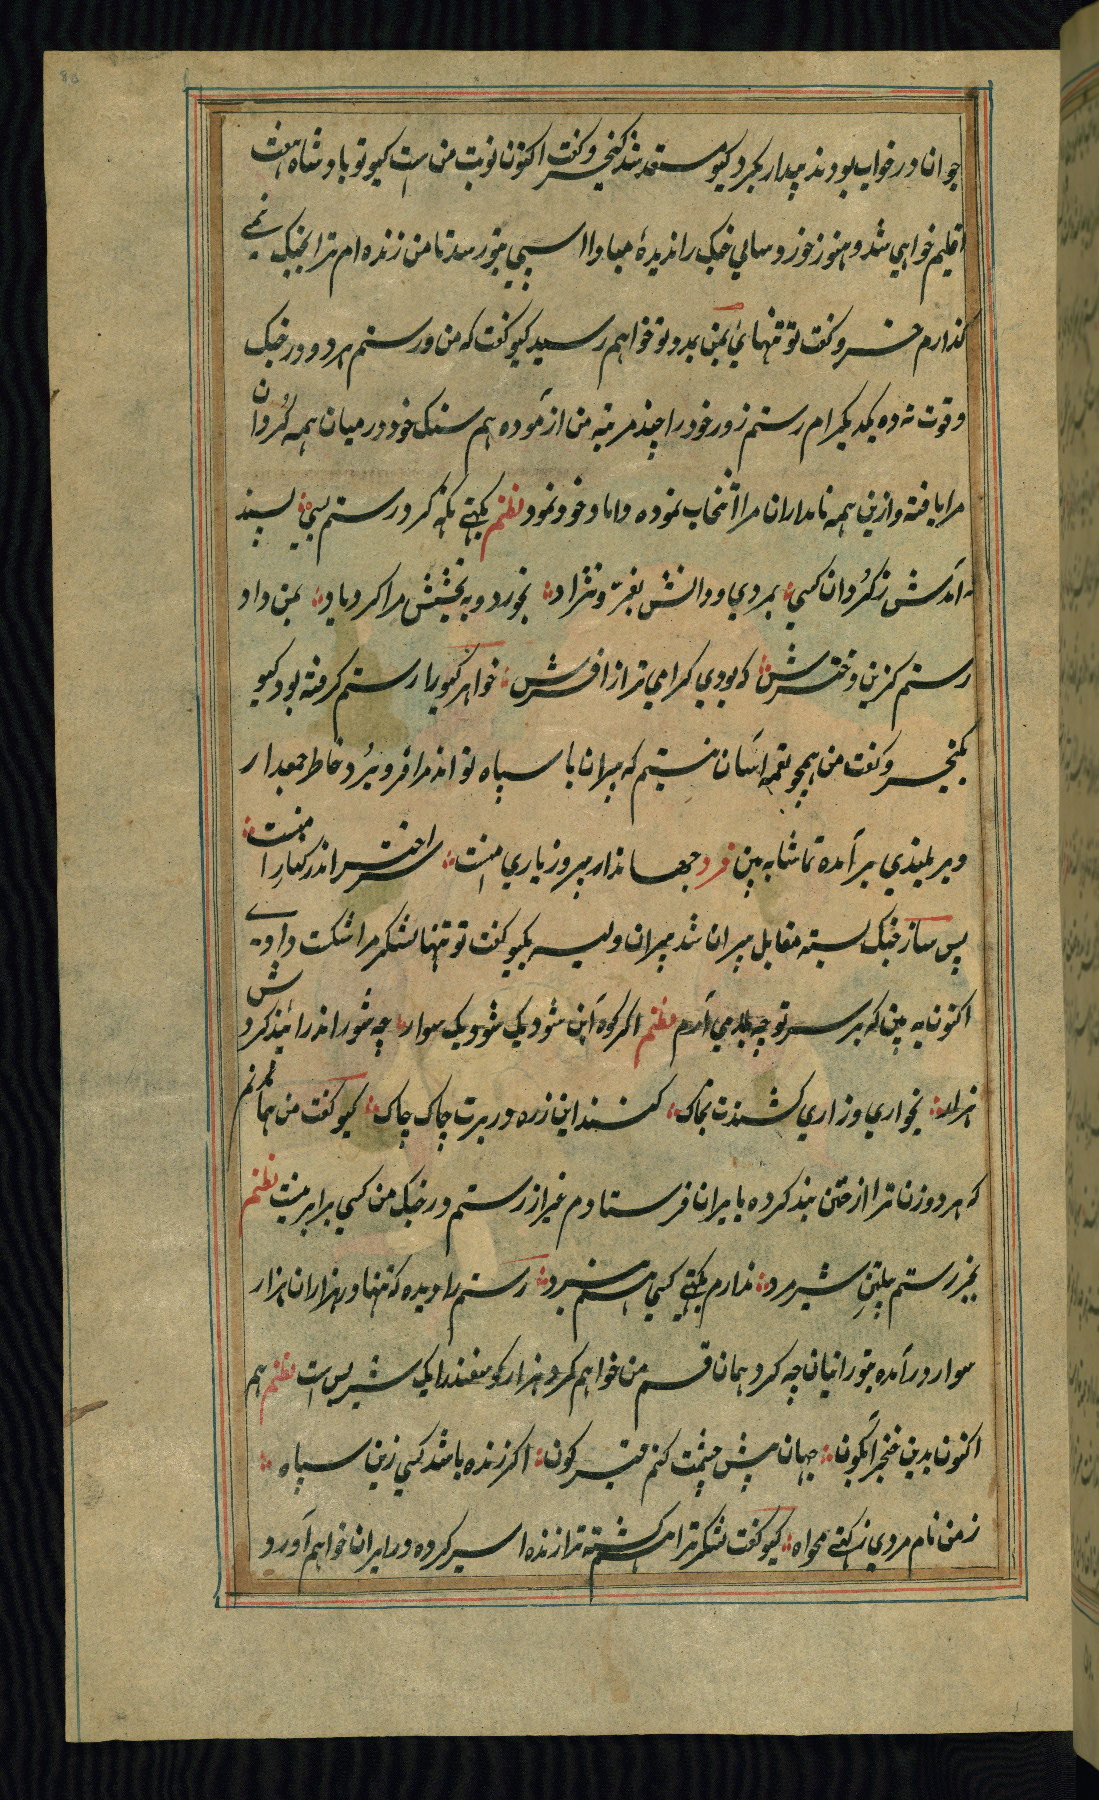 جوانا در خواب بودند بیدار بکرد کیو مستعد شد کیخسرو کفت اکنون نوبت من است کیو تو بادشاه هفت
اقلیم خواهي شد و هنوز خورد سالي جنک را ندیدهٔ مبادا اسیبي بتو رسد تا من زنده ام ترا بجنک نمے
کذارم خسرو کفت تو تنهائ بمن بدو تو خواهم رسید کیو کفت که من و رستم هر دو در جنک
و قوت نه ده یکدیکر ام رستم زور خود را چند مرتبه من ازموده هم سنک خود در میان همه کُردان
مرا یافته و ازین همه نامداران مرا انتخاب نموده داماد خود نمود نظم بکیتے نکه کرد رستم بسي پسند
نه آمدش ز کُردان کسي بمردي و دانش بفرّ و نژاد بخورد و به بخشش مرا کرد یاد بمن داد
رستم کزین دخترش که بودي کرامي تر از افسرش خواهر کیو را رستم کرفته بود کیو
بکیخسرو کفت من همچو لقمه اسان نیستم که پیران با سپاه تواند مرا فرو بُرد خاطر جمعدار
و بر بلندي بر آمده تماشا به بین فرد جهاندار پیروز یاري منست سر اختر اندر کنارِ منست
پس ساز جنک بسته مقابل پیران شد پیران ویسه بکیو کفت تو تنها لشکر مرا شکست دادے
اکنون به بین که بر سر تو چه بلا مي آرم نظم اکر کوه آهن شود یک سوار چه شور اندر ایند کردش
هزار بخواري و زاري کشندت بخاک کنند این زره در برت چاک چاک کیو کفت من همانم
که هر دو زن ترا از ختن بند کرده بایران فرستادم غیر از رستم در جنک من کسي برابر نیست نظم
بجز رستم پیلتن شیر مرد ندارم بکیتے کسي هم نبرد رستم را دیده که تنها در هزاران هزار
سوار در آمده بتورانیان چه کرد همان قسم من خواهم کرد هزار کوسفند را یک شیر بس است نظم هم
اکنون بدین خنجر آبکون جهان پیش چشمت کنم قیرکون اکر زنده باشد کسي زین سپاه
ز من نام مردي ز کیتے مخواه کیو کفت لشکر ترا هم کشته ترا زنده اسیر کرده در ایران خواهم آورد